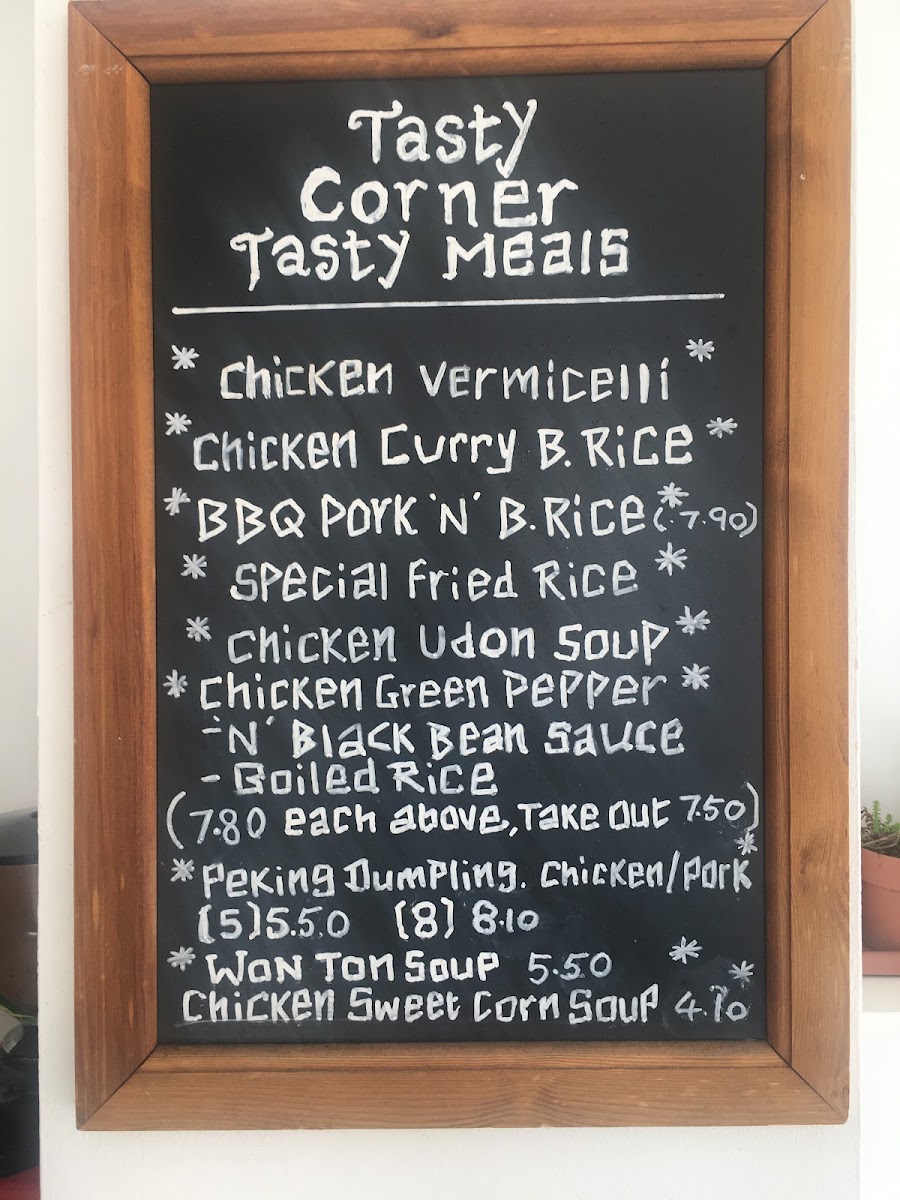 Tasty
Corner
Tasty Meals
* Chicken Vermicelli *
* Chicken Curry B. Rice *
* BBQ Pork 'N' B. Rice * (7.90)
* Special Fried Rice *
* Chicken Udon Soup *
* Chicken Green Pepper *
- 'N' Black Bean Sauce
- Boiled Rice
(7.80 each above, Take Out 7.50)
* Peking Dumpling. Chicken/Pork *
(5) 5.50 (8) 8.10
* Won Ton Soup 5.50 *
Chicken Sweet Corn Soup 4.10 *